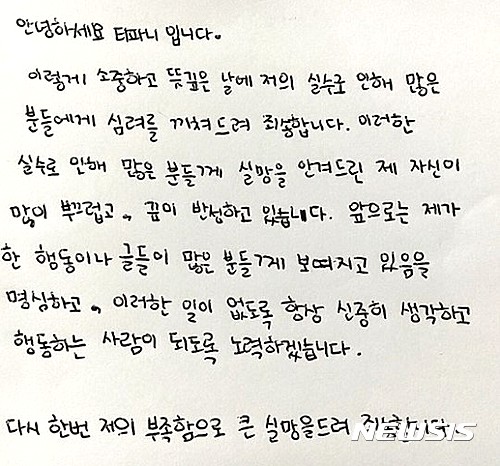 안녕하세요 티파니 입니다.
이렇게 소중하고 뜻깊은 날에 저의 실수로 인해 많은
분들에게 심려를 끼쳐드려 죄송합니다. 이러한
실수로 인해 많은 분들께 실망을 안겨드린 제 자신이
많이 부끄럽고, 깊이 반성하고 있습니다. 앞으로는 제가
한 행동이나 글들이 많은 분들께 보여지고 있음을
명심하고, 이러한 일이 없도록 항상 신중히 생각하고
행동하는 사람이 되도록 노력하겠습니다.
다시 한번 저의 부족함으로 큰 실망을드려 죄송합니다
NEWSIS